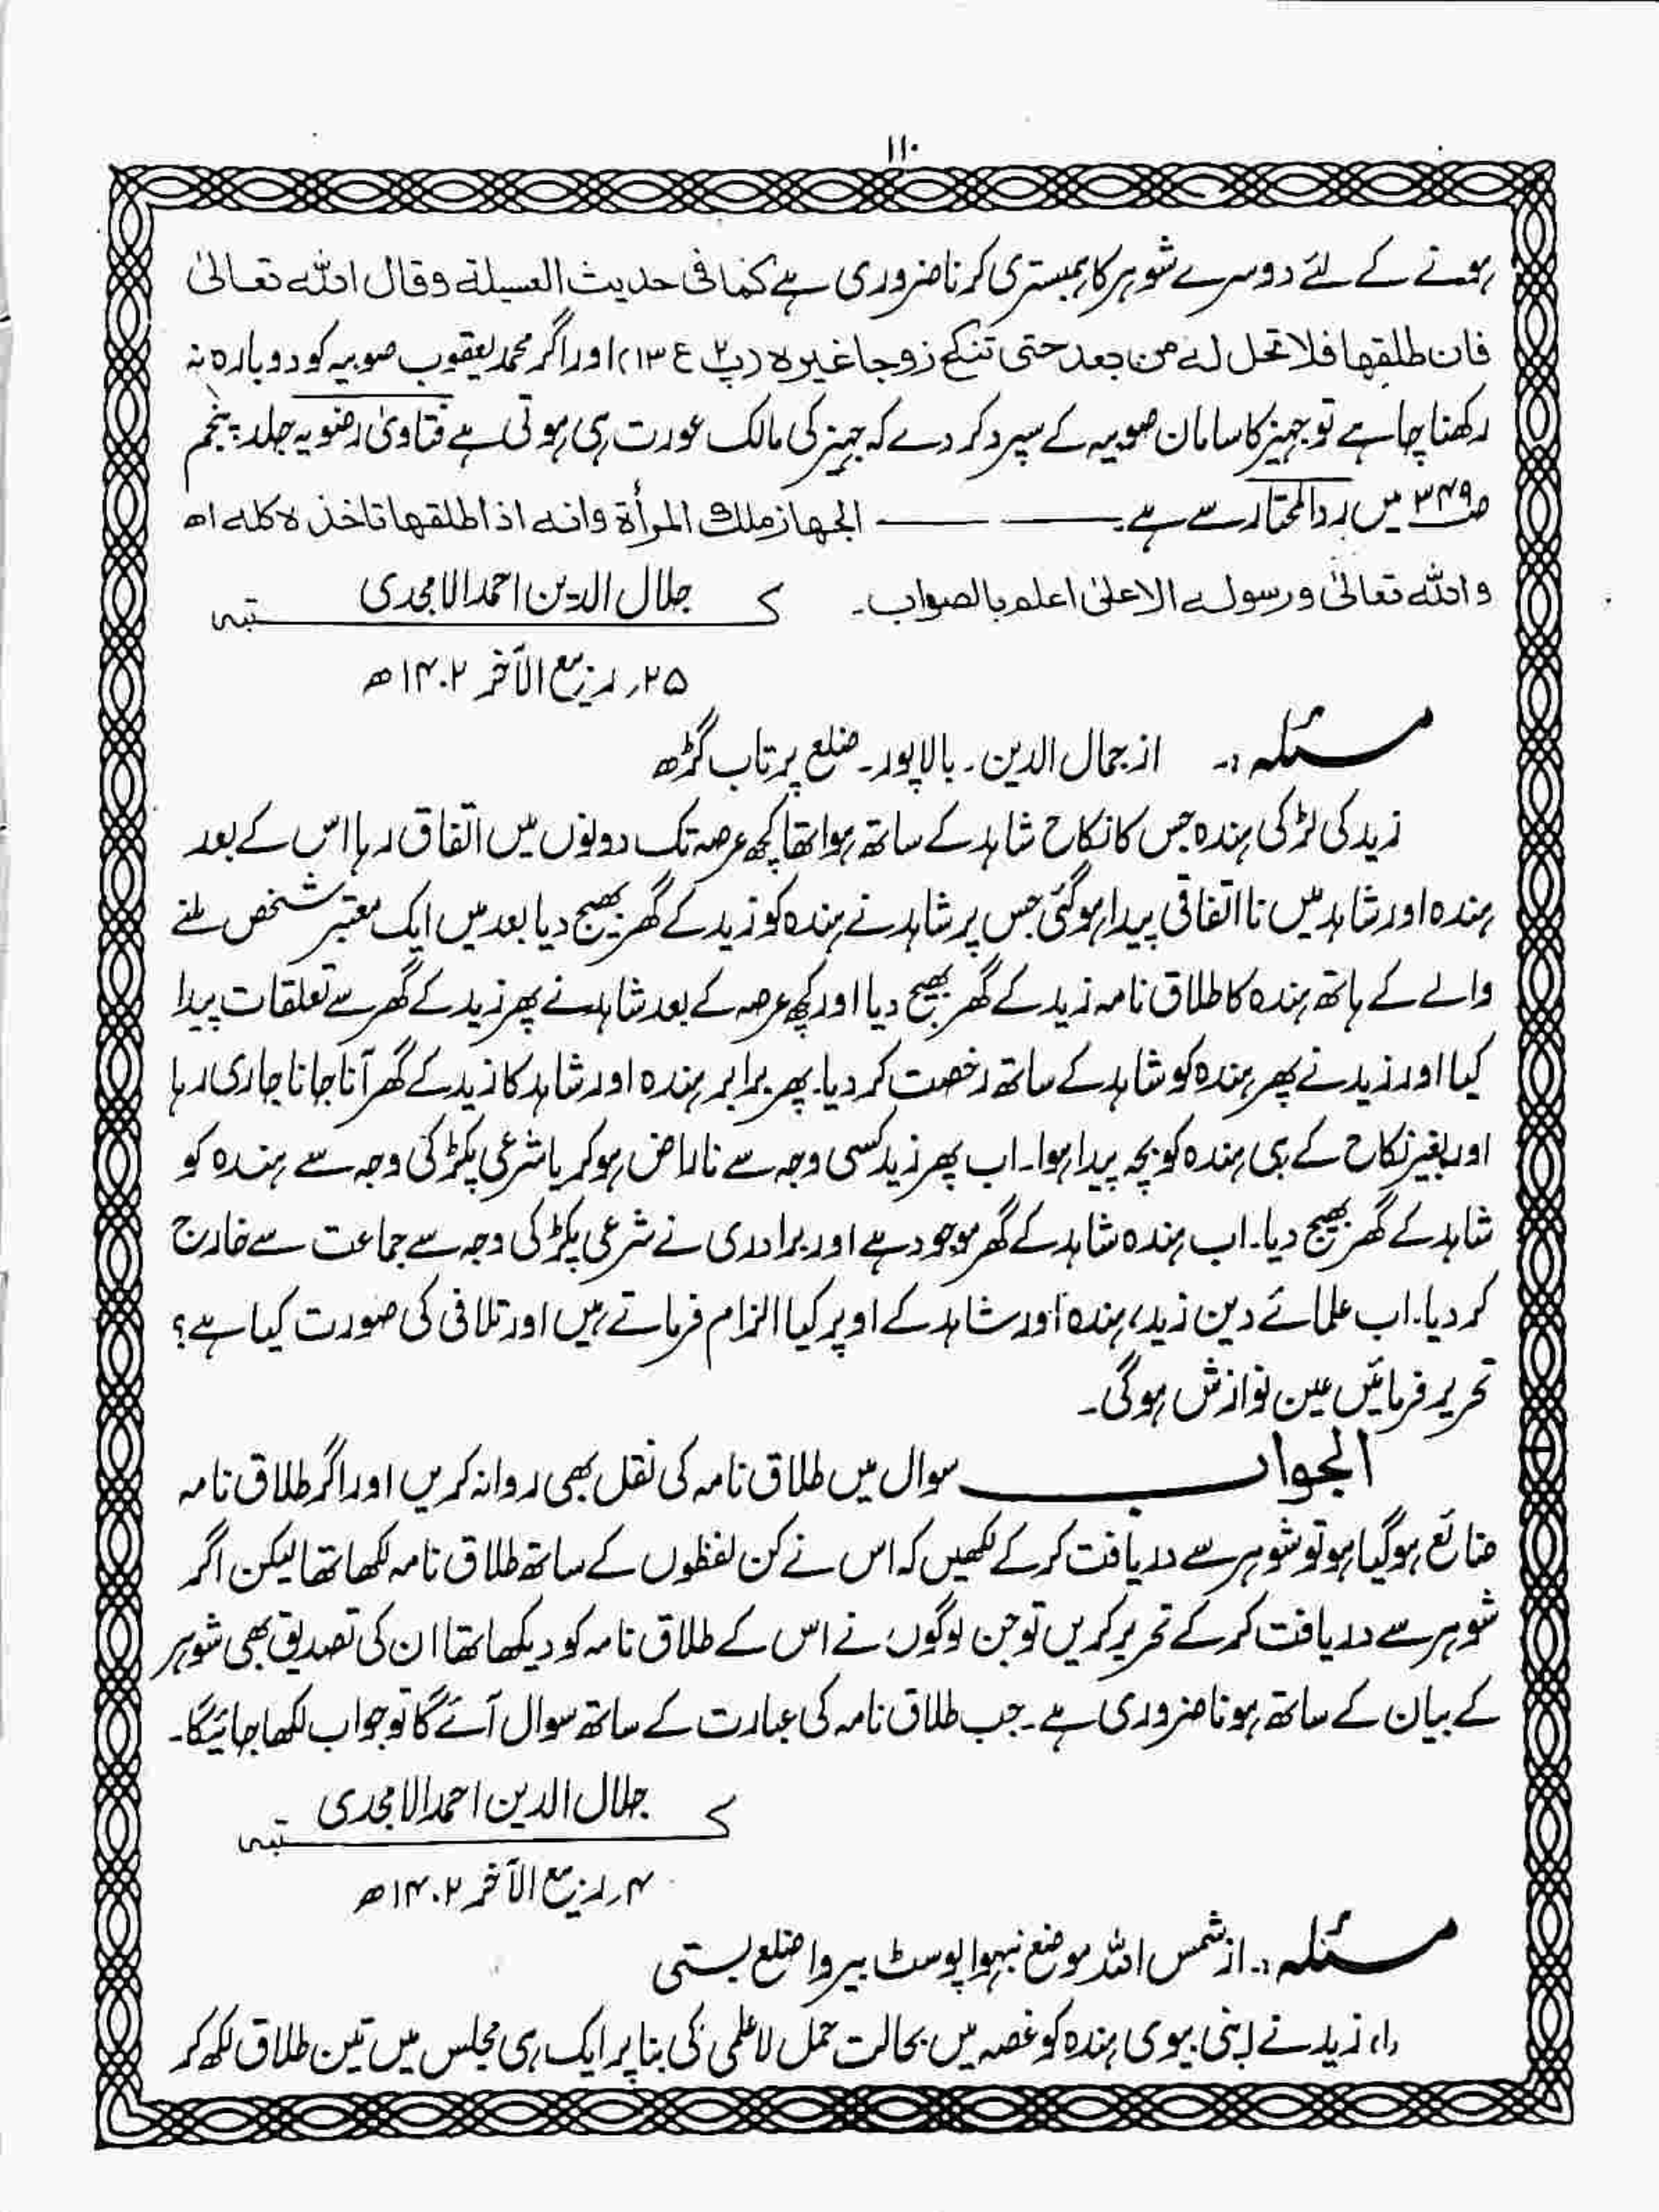 ۱۱۰
ہونے کے لئے دوسرے شوہر کا ہمبستری کرنا ضروری ہے کما فی حدیث العسیلۃ وقال اللہ تعالیٰ
فان طلقها فلا تحل لہ من بعد حتی تنکح زوجا غیرہ (پ۲ ع۱۳) اور اگر محمد یعقوب صوبیہ کو دوبارہ نہ
رکھنا چاہے تو جہیز کا سامان صوبیہ کے سپرد کر دے کہ جہیز کی مالک عورت ہی ہوتی ہے فتاویٰ رضویہ جلد پنجم
ص۳۴۹ میں رد المحتار سے ہے۔ الجهاز ملک المرأۃ وانہ اذا طلقها تاخذہ کلہ اھ
واللہ تعالیٰ ورسولہ الاعلیٰ اعلم بالصواب۔ کتبہ جلال الدین احمد الامجدی
۲۵؍ ربیع الآخر ۱۴۰۲ھ
مسئلہ :۔ از جمال الدین۔ بالاپور۔ ضلع پرتاب گڑھ
زید کی لڑکی ہندہ جس کا نکاح شاہد کے ساتھ ہوا تھا کچھ عرصہ تک دونوں میں اتفاق رہا اس کے بعد
ہندہ اور شاہد میں نااتفاقی پیدا ہوگئی جس پر شاہد نے ہندہ کو زید کے گھر بھیج دیا بعد میں ایک معتبر شخص ملنے
والے کے ہاتھ ہندہ کا طلاق نامہ زید کے گھر بھیج دیا اور کچھ عرصہ کے بعد شاہد نے پھر زید کے گھر سے تعلقات پیدا
کیا اور زید نے پھر ہندہ کو شاہد کے ساتھ رخصت کر دیا۔ پھر برابر ہندہ اور شاہد کا زید کے گھر آنا جانا جاری رہا
اور بغیر نکاح کے ہی ہندہ کو بچہ پیدا ہوا۔ اب پھر زید کسی وجہ سے ناراض ہوکر یا شرعی پکڑ کی وجہ سے ہندہ کو
شاہد کے گھر بھیج دیا۔ اب ہندہ شاہد کے گھر موجود ہے اور برادری نے شرعی پکڑ کی وجہ سے جماعت سے خارج
کر دیا۔ اب علمائے دین زید، ہندہ اور شاہد کے اوپر کیا الزام فرماتے ہیں اور تلافی کی صورت کیا ہے؟
تحریر فرمائیں عین نوازش ہوگی۔
الجواب سوال میں طلاق نامہ کی نقل بھی روانہ کریں اور اگر طلاق نامہ
ضائع ہوگیا ہو تو شوہر سے دریافت کرکے لکھیں کہ اس نے کن لفظوں کے ساتھ طلاق نامہ لکھا تھا لیکن اگر
شوہر سے دریافت کرکے تحریر کریں تو جن لوگوں نے اس کے طلاق نامہ کو دیکھا تھا ان کی تصدیق بھی شوہر
کے بیان کے ساتھ ہونا ضروری ہے۔ جب طلاق نامہ کی عبارت کے ساتھ سوال آئے گا تو جواب لکھا جائیگا۔
کتبہ جلال الدین احمد الامجدی
۴؍ ربیع الآخر ۱۴۰۲ھ
مسئلہ :۔ از شمس اللہ موضع نیہوا پوسٹ بیروا ضلع بستی
(۱) زید نے اپنی بیوی ہندہ کو غصہ میں بحالت حمل لاعلمی کی بنا پر ایک ہی مجلس میں تین طلاق لکھ کر